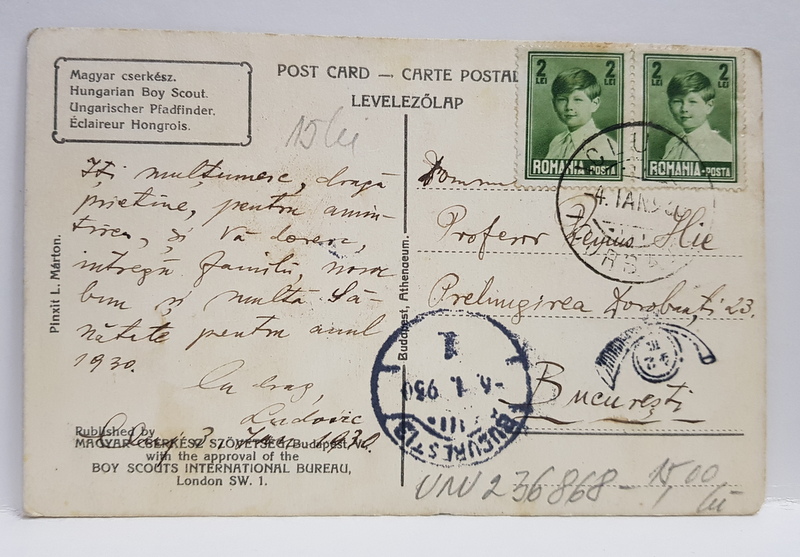 Magyar cserkész.
Hungarian Boy Scout.
Ungarischer Pfadfinder.
Éclaireur Hongrois.
POST CARD — CARTE POSTAL
LEVELEZŐLAP
2 LEI
ROMANIA-POSTA
2 LEI
ROMANIA-POSTA
15 lei
CLUJ
4. IAN 930
Îți mulțumesc, dragă
prietine, pentru amin-
tirea, și Vă doresc,
intregă familii, noroc
bun și multă Să-
nătate pentru anul
1930.
Cu drag,
Ludovic
Cluj, 3 Jan. 1930
Domnu
Profesor Remus Ilie
Prelungirea Dorobanți 23.
București
Pinxit L. Márton.
Budapest, Athenaeum.
1
-6. 1. 930
BUCUREȘTI
Published by
MAGYAR CSERKÉSZ SZÖVETSÉG, Budapest, V.
with the approval of the
BOY SCOUTS INTERNATIONAL BUREAU,
London SW. 1.
UNV 236868 - 15,00
lei